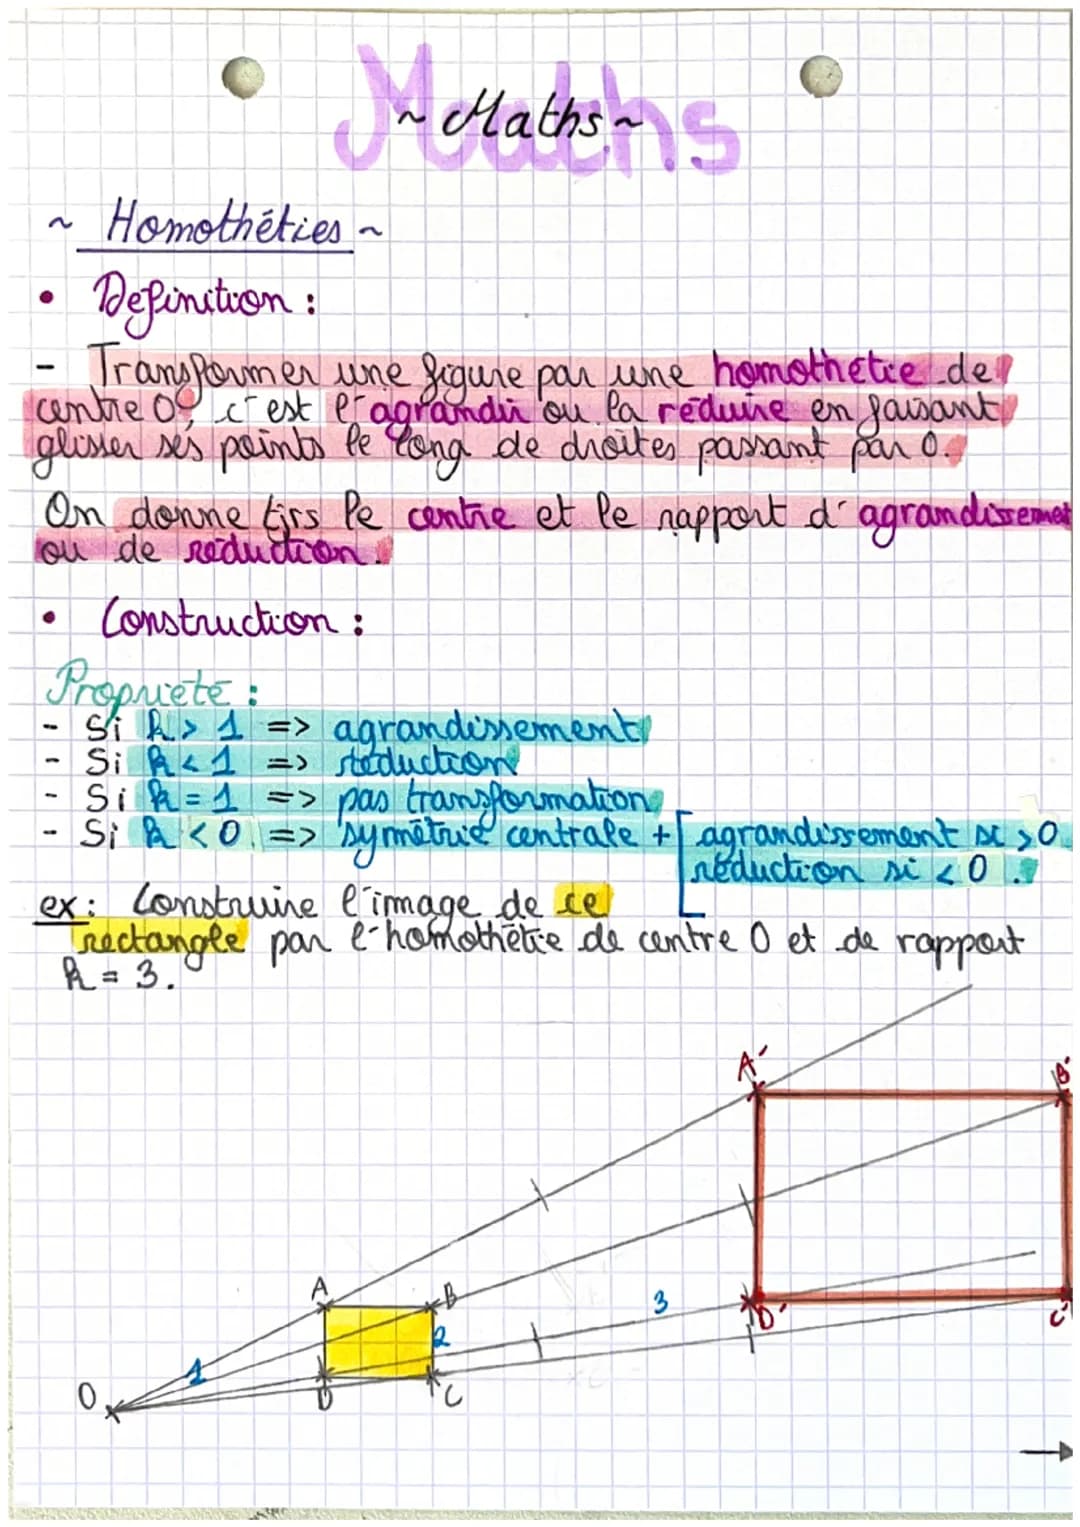 Maths
~ Maths ~
~ Homothéties ~
• Definition :
- Transformer une figure par une homothétie de
centre O, c'est l'agrandir ou la réduire en faisant
glisser ses points le long de droites passant par O.
On donne tjrs le centre et le rapport d'agrandissement
ou de réduction.
• Construction :
Propriété :
- Si k > 1 => agrandissement
- Si k < 1 => réduction
- Si k = 1 => pas transformation
- Si k < 0 => symétrie centrale + [ agrandissement si > 0
réduction si < 0 .
ex : Construire l'image de ce
rectangle par l'homothétie de centre O et de rapport
k = 3.
A' B'
A B 3
1 2 D' C'
O D C